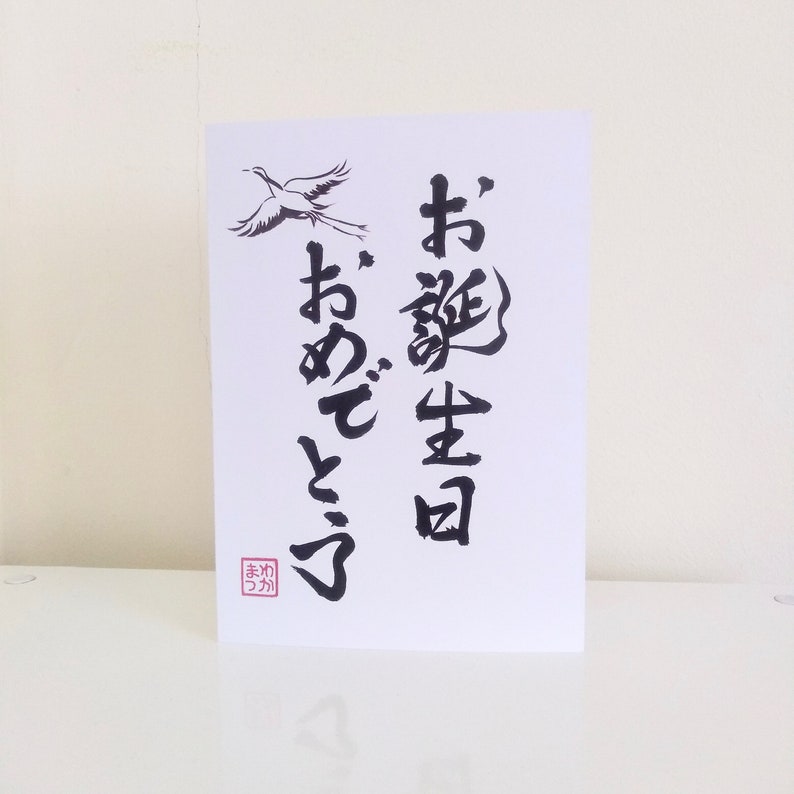 お誕生日
おめでとう
わか
まつ